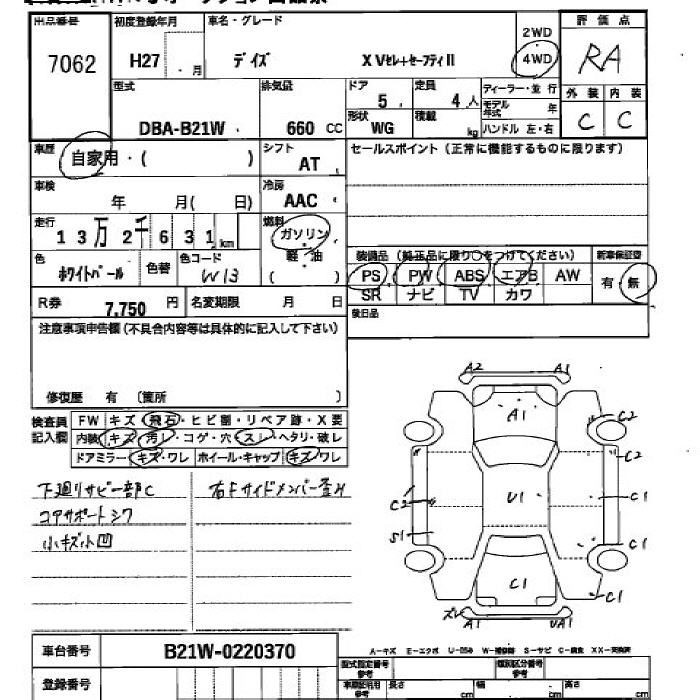 出品番号 初度登録年月 車名・グレード 評価点
7062 H27 ・ 月 デイズ X Vセレ+セーフティII 2WD 4WD RA
型式 排気量 ドア 定員 ディーラー・並行 外装 内装
DBA-B21W 660 CC 5 4人 モデル年式 年 C C
形状 WG 積載 kg ハンドル 左・右
車歴 自家用・( ) シフト AT セールスポイント(正常に機能するものに限ります)
車検 年 月( 日) 冷房 AAC
走行 13万2千631km 燃料 ガソリン 軽・油 ( )
色 ホワイトパール 色替 色コード W13
装備品 (純正品に限り○をつけてください) 新車保証書
PS PW ABS エアB AW 有・無
SR ナビ TV カワ
R券 7,750 円 名変期限 月 日
後日品
注意事項申告欄(不具合内容等は具体的に記入して下さい)
修復歴 有 〔箇所 〕
検査員記入欄 FW キズ・飛石・ヒビ割・リペア跡・X要
内装 キズ・汚レ・コゲ・穴・スレ・ヘタリ・破レ
ドアミラー・キズ・ワレ ホイール・キャップ キズ・ワレ
下廻りサビ一部C 右Fサイドメンバー歪み
コアサポートシワ
小キズ小凹
A2 A1
A1
C2
C2
C2 U1 C1
S1 C1
C1
C1
ズレ UA1
車台番号 B21W-0220370
A-キズ E-エクボ U-凹み W-補修跡 S-サビ C-腐食 XX-交換済
登録番号 型式指定番号 参考 類別区分番号 参考
車庫証明用 参考 長さ cm 幅 cm 高さ cm